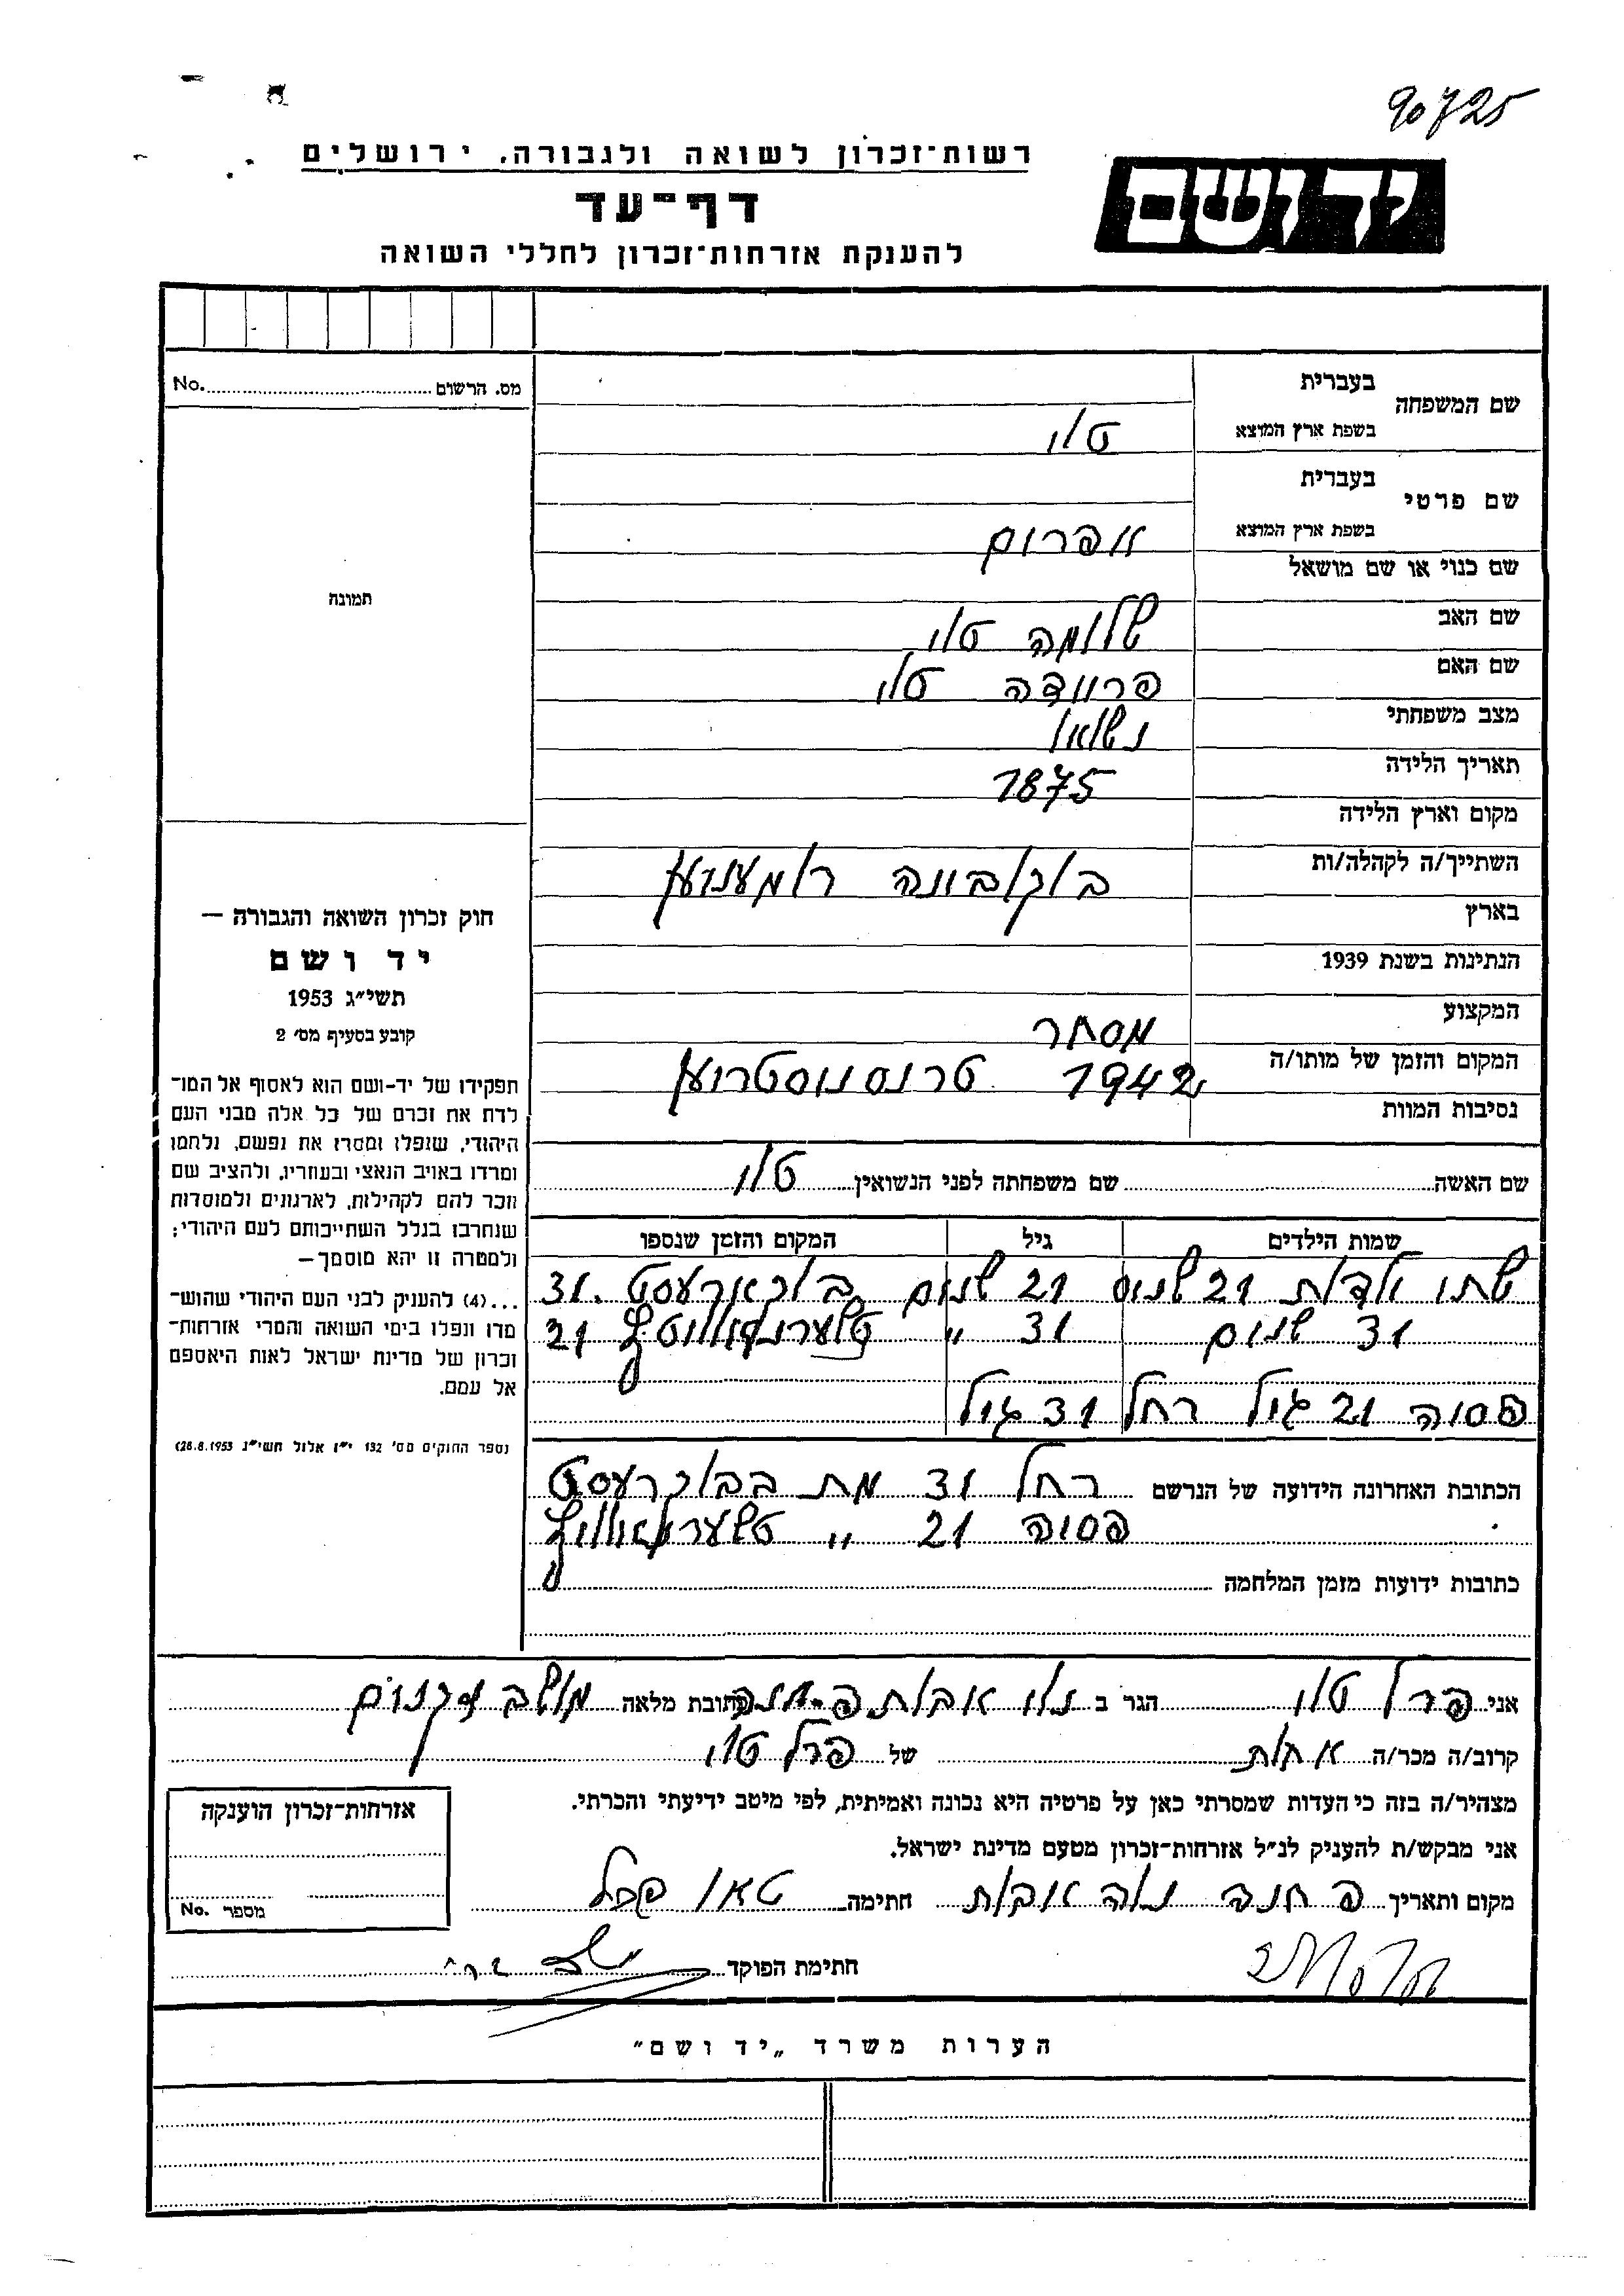 90725
רשות־זכרון לשואה ולגבורה, ירושלים
יד ושם
דף־עד
להענקת אזרחות־זכרון לחללי השואה
מס. הרשום No.
שם המשפחה
בעברית
בשפת ארץ המוצא טלי
שם פרטי
בעברית
בשפת ארץ המוצא אפרים
שם כנוי או שם מושאל
שם האב שלומה טלי
שם האם פריידה טלי
מצב משפחתי נשואי
תאריך הלידה 1875
מקום וארץ הלידה
השתייך/ה לקהלה/ות בוקבינה רומעניען
בארץ
הנתינות בשנת 1939
המקצוע מסחר
המקום והזמן של מותו/ה 1942 טרנסניסטריען
נסיבות המוות
תמונה
חוק זכרון השואה והגבורה —
יד ושם
תשי״ג 1953
קובע בסעיף מס׳ 2
תפקידו של יד-ושם הוא לאסוף אל המו־
לדת את זכרם של כל אלה מבני העם
היהודי, שנפלו ומסרו את נפשם, נלחמו
ומרדו באויב הנאצי ובעוזריו, ולהציב שם
וזכר להם לקהילות, לארגונים ולמוסדות
שנחרבו בגלל השתייכותם לעם היהודי;
ולמטרה זו יהא מוסמך—
...(4) להענית לבני העם היהודי שהוש־
מדו ונפלו בימי השואה והמרי אזרחות־
זכרון של מדינת ישראל לאות היאספם
אל עמם.
(ספר החוקים מס׳ 132 י״ז אלול תשי״ג 28.8.1953)
שם האשה שם משפחתה לפני הנשואין טלי
שמות הילדים גיל המקום והזמן שנספו
שתי ילדות 21 שנים 21 שנים בוכארעסט 31
31 שנים 31 " טשערנאוויץ 21
פסיה 21 גיל רחל 31 גיל
הכתובת האחרונה הידועה של הנרשם רחל 31 מת בבוכרעסט
פסיה 21 " טשערנאוויץ
כתובות ידועות מזמן המלחמה
אני פרל טלי הגר ב כתובת מלאה מושב זקנים
קרוב/ה מכר/ה אחות של פרל טלי
מצהיר/ה בזה כי העדות שמסרתי כאן על פרטיה היא נכונה ואמיתית, לפי מיטב ידיעתי והכרתי.
אני מבקש/ת להעניק לנ״ל אזרחות־זכרון מטעם מדינת ישראל.
מקום ותאריך פ חנה נוה אבות חתימה פרל
חתימת הפוקד
אזרחות־זכרון הוענקה
מספר No.
הערות משרד „יד ושם״